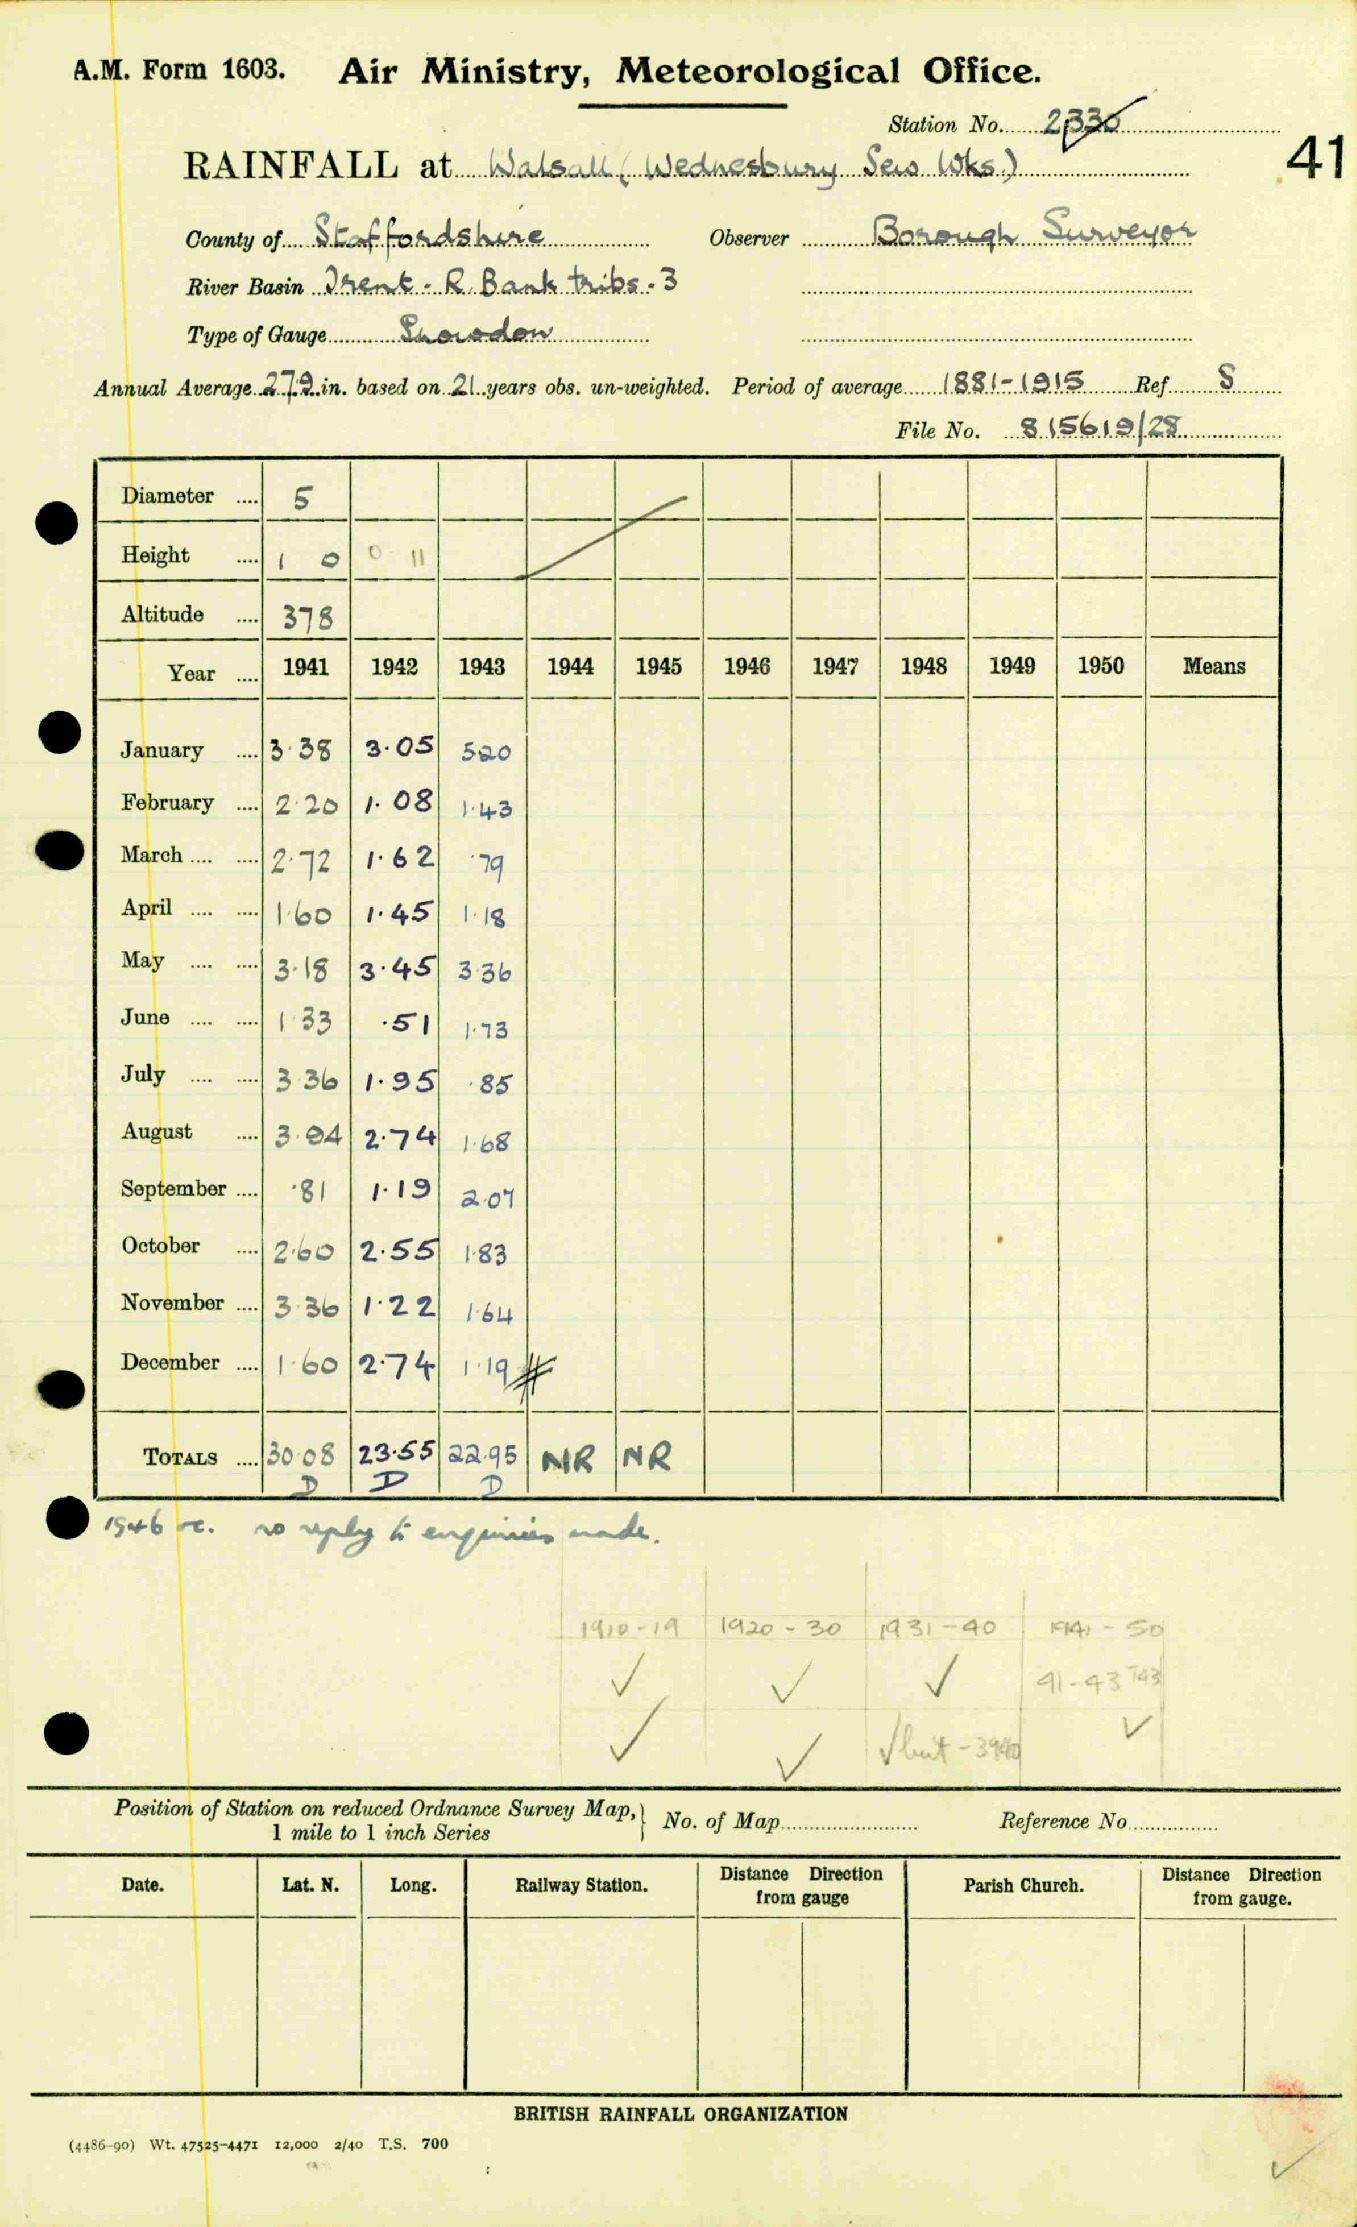 A.M. Form 1603. Air Ministry, Meteorological Office.
Station No. 2,330
41
RAINFALL at Walsall (Wednesbury Sew Wks.)
County of Staffordshire Observer Borough Surveyor
River Basin Trent - R. Bank tribs. 3
Type of Gauge Snowdon
Annual Average 27.9 in. based on 21 years obs. un-weighted. Period of average 1881-1915 Ref S
File No. 815619/28
Diameter .... 5
Height .... 1 0 0 11
Altitude .... 378
Year .... 1941 1942 1943 1944 1945 1946 1947 1948 1949 1950 Means
January .... 3.38 3.05 5.20
February .... 2.20 1.08 1.43
March .... .... 2.72 1.62 .79
April .... .... 1.60 1.45 1.18
May .... .... 3.18 3.45 3.36
June .... .... 1.33 .51 1.73
July .... .... 3.36 1.95 .85
August .... 3.94 2.74 1.68
September .... .81 1.19 2.07
October .... 2.60 2.55 1.83
November .... 3.36 1.22 1.64
December .... 1.60 2.74 1.19
TOTALS .... 30.08 23.55 22.95 NR NR
D D D
1946 no reply to enquiries made.
1910-19 1920-30 1931-40 1941-50
✓ ✓ ✓ 41-43 743
✓ ✓ ✓ but - 3940 ✓
Position of Station on reduced Ordnance Survey Map, } No. of Map Reference No.
1 mile to 1 inch Series
Date. Lat. N. Long. Railway Station. Distance Direction from gauge Parish Church. Distance Direction from gauge.
BRITISH RAINFALL ORGANIZATION
(4486-90) Wt. 47525-4471 12,000 2/40 T.S. 700